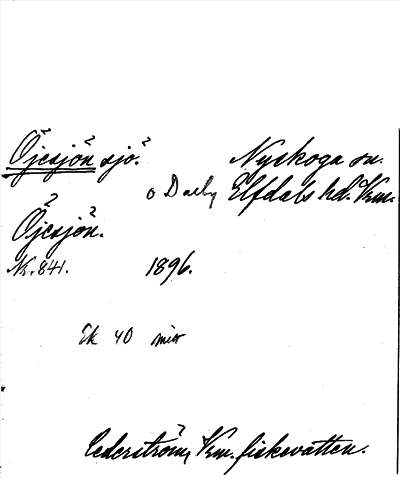 Öjesjön sjö. Nyskoga sn.
o Dalby Elfdals hd. Vrm.
Öjesjön.
Nr. 841. 1896.
Ek 40
Cederström, Vrm. fiskevatten.